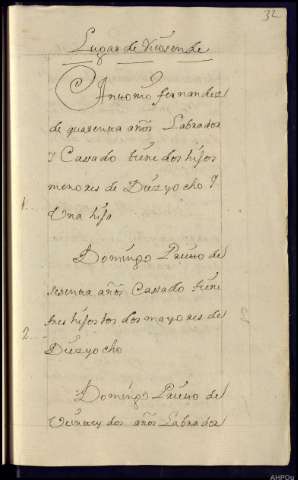 32
Lugar de Viñsende
Antonio fernandez
de quarenta años Labrador
y Cassado tiene dos hijos
menores de Diezyocho y
1 Una hija
Domingo Prieto de
sesenta años Cassado tiene
tres hijos los dos mayores de
2 Diezyocho
Domingo Prieto de
Veintey dos años Labrador
AHPOu